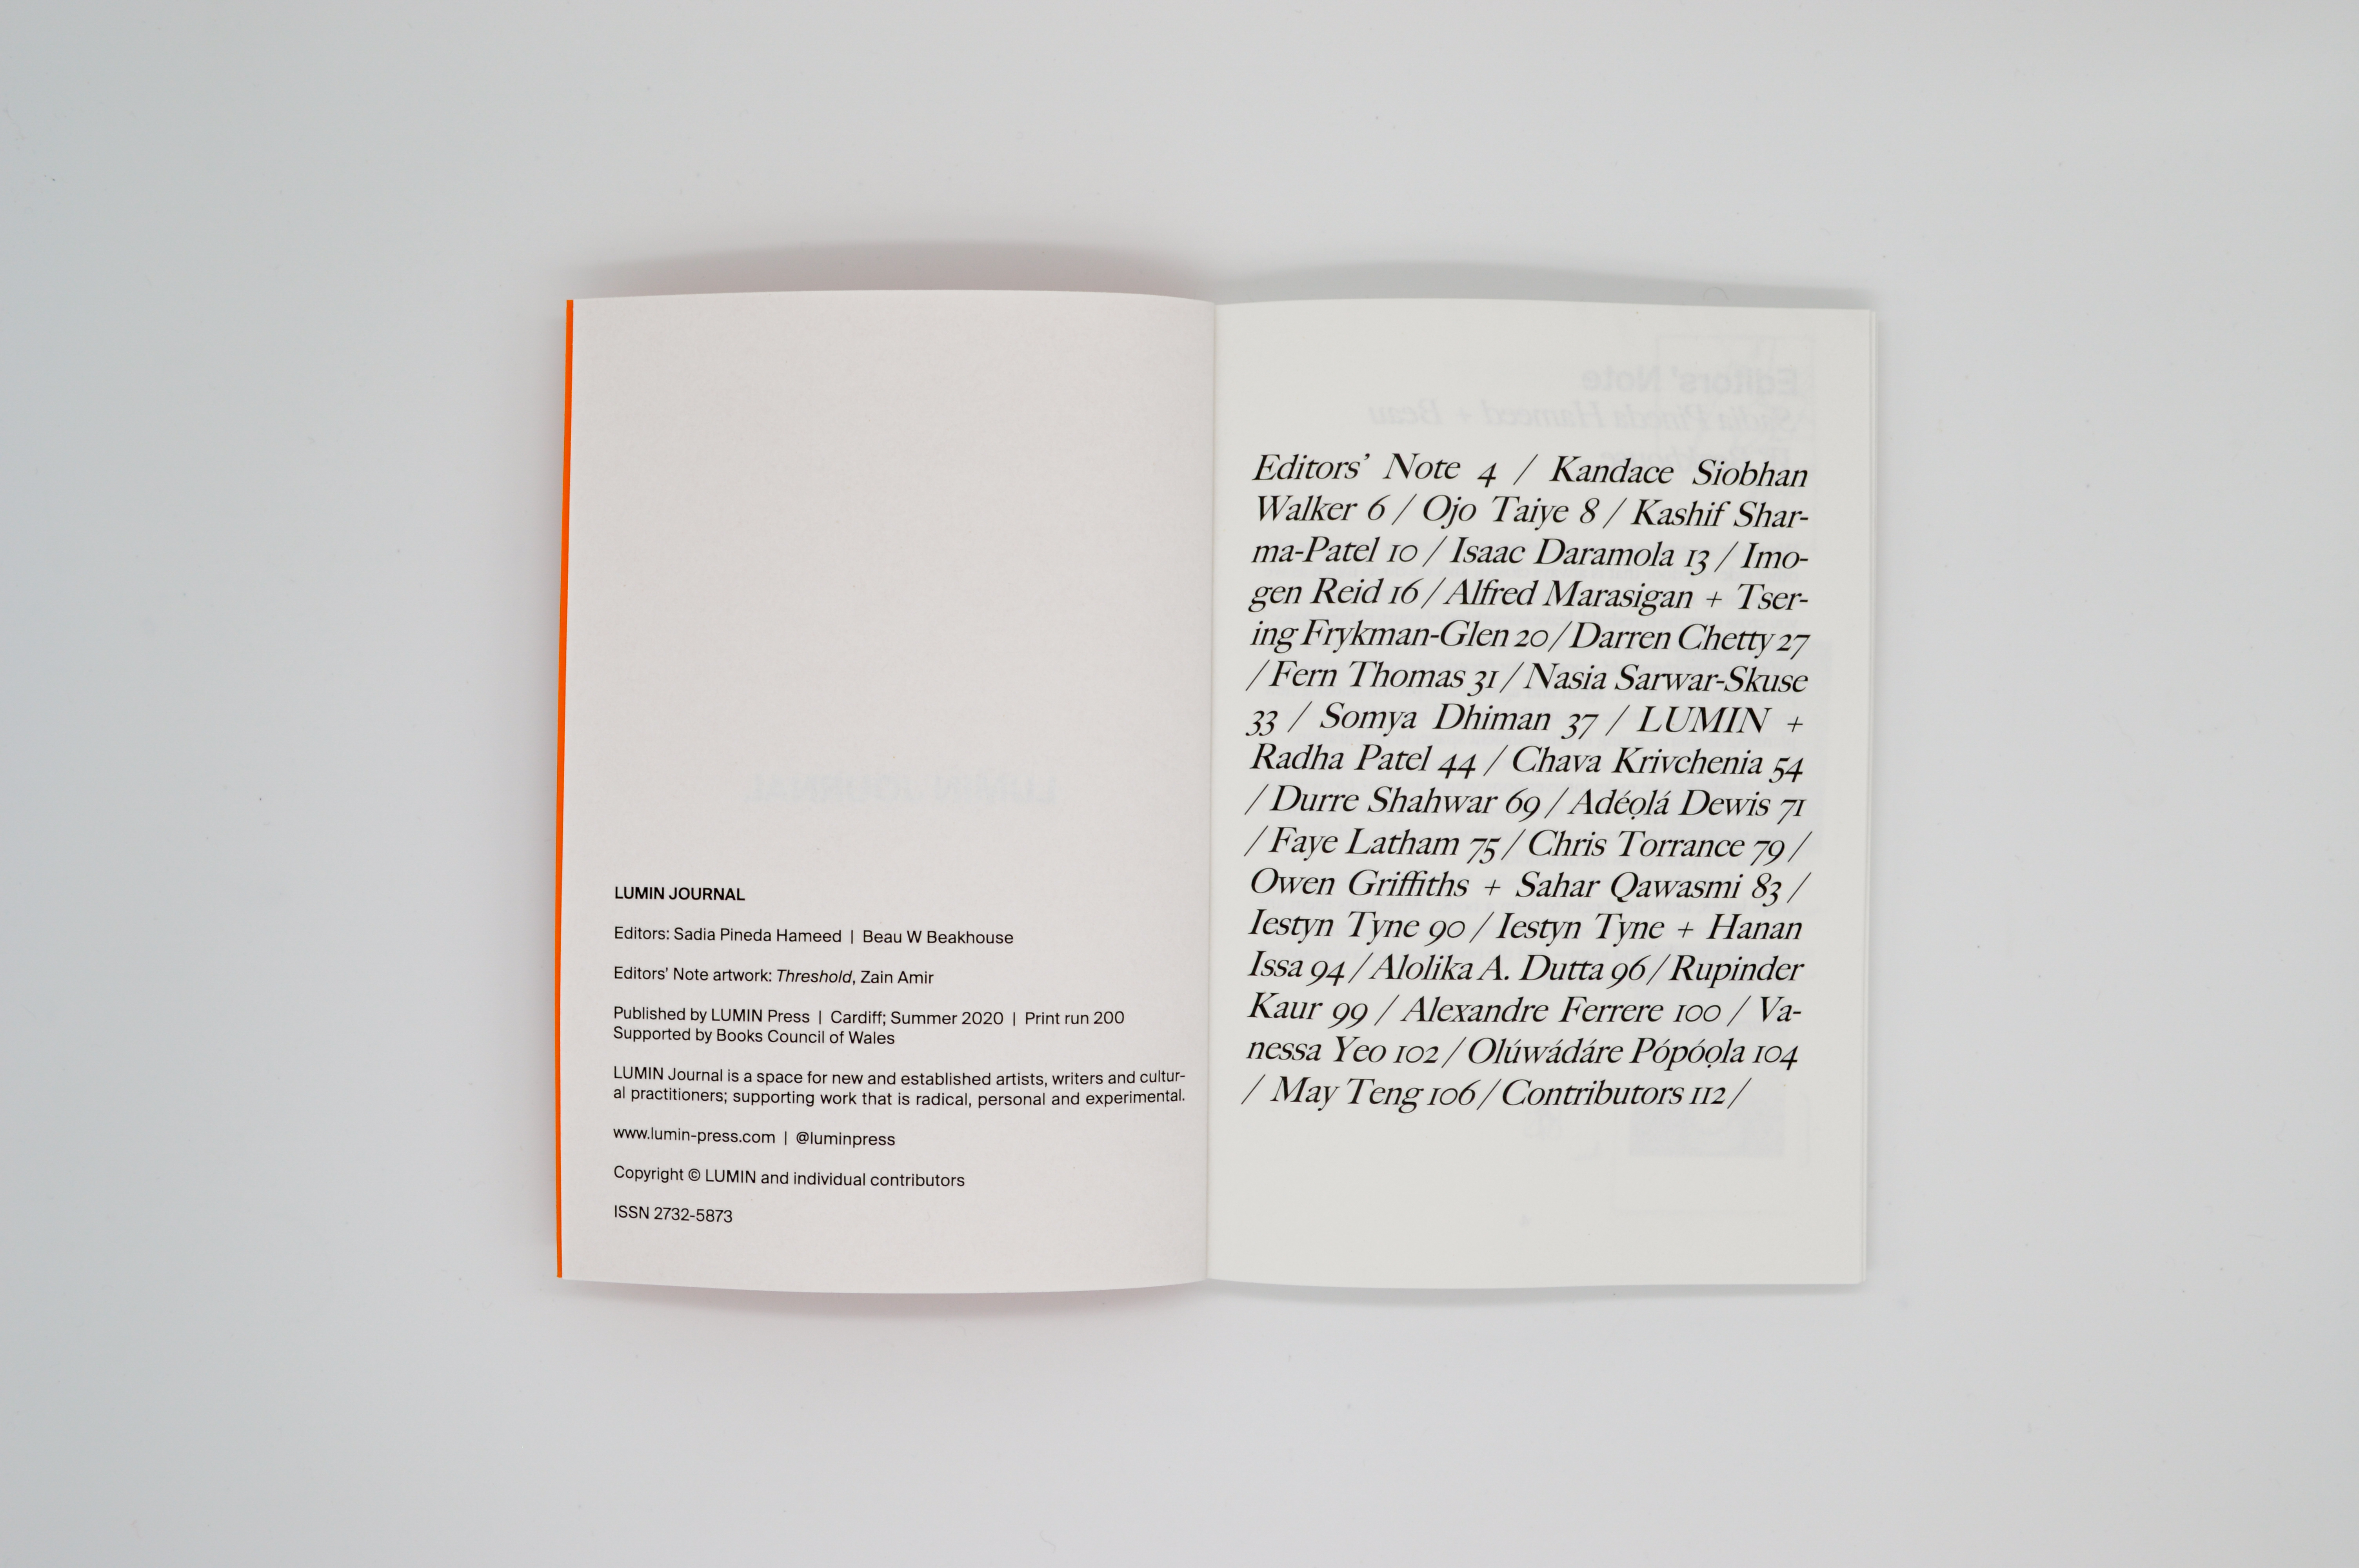 LUMIN JOURNAL
Editors: Sadia Pineda Hameed | Beau W Beakhouse
Editors' Note artwork: Threshold, Zain Amir
Published by LUMIN Press | Cardiff; Summer 2020 | Print run 200
Supported by Books Council of Wales
LUMIN Journal is a space for new and established artists, writers and cultur-
al practitioners; supporting work that is radical, personal and experimental.
www.lumin-press.com | @luminpress
Copyright © LUMIN and individual contributors
ISSN 2732-5873
Editors' Note 4 / Kandace Siobhan
Walker 6 / Ojo Taiye 8 / Kashif Shar-
ma-Patel 10 / Isaac Daramola 13 / Imo-
gen Reid 16 / Alfred Marasigan + Tser-
ing Frykman-Glen 20 / Darren Chetty 27
/ Fern Thomas 31 / Nasia Sarwar-Skuse
33 / Somya Dhiman 37 / LUMIN +
Radha Patel 44 / Chava Krivchenia 54
/ Durre Shahwar 69 / Adéọlá Dewis 71
/ Faye Latham 75 / Chris Torrance 79 /
Owen Griffiths + Sahar Qawasmi 83 /
Iestyn Tyne 90 / Iestyn Tyne + Hanan
Issa 94 / Alolika A. Dutta 96 / Rupinder
Kaur 99 / Alexandre Ferrere 100 / Va-
nessa Yeo 102 / Olúwádáre Pópóọla 104
/ May Teng 106 / Contributors 112 /